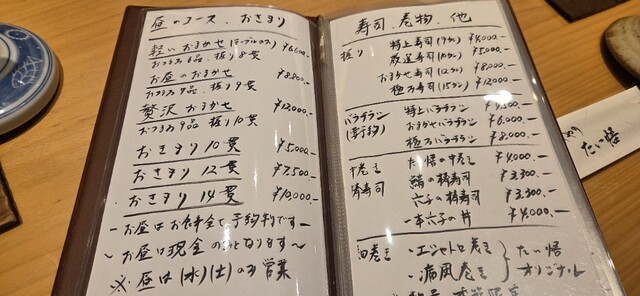 昼のコース、おきまり
軽いおまかせ(テーブルのみ) ¥6,600.-
おつまみ6品、握り8貫
お昼のおまかせ ¥8,800.-
おつまみ7品、握り9貫
贅沢おまかせ ¥12,000.-
おつまみ9品 握り10貫
おきまり10貫 ¥5,000.-
おきまり12貫 ¥7,500.-
おきまり14貫 ¥10,000.-
-お昼はお食事全て予約制です-
~お昼は現金のみとなります~
※昼は(水)(土)のみ営業
寿司、巻物、他
握り 特上寿司(9カン) ¥4,000.-
厳選寿司(10カン) ¥5,000.-
おまかせ寿司(12カン) ¥8,000.-
極み寿司(15カン) ¥12,000
バラチラシ 特上バラチラシ ¥4,500.-
(要予約) おまかせバラチラシ ¥6,000.-
極みバラチラシ ¥8,000.-
中巻き たい悟の中巻き ¥4,000.-
棒寿司 鯖の棒寿司 ¥3,300.-
穴子の棒寿司 ¥3,300.-
一本穴子の丼 ¥4,000.-
細巻き ・エシャレと巻き たい悟
・痛風巻き オリジナル
たい悟